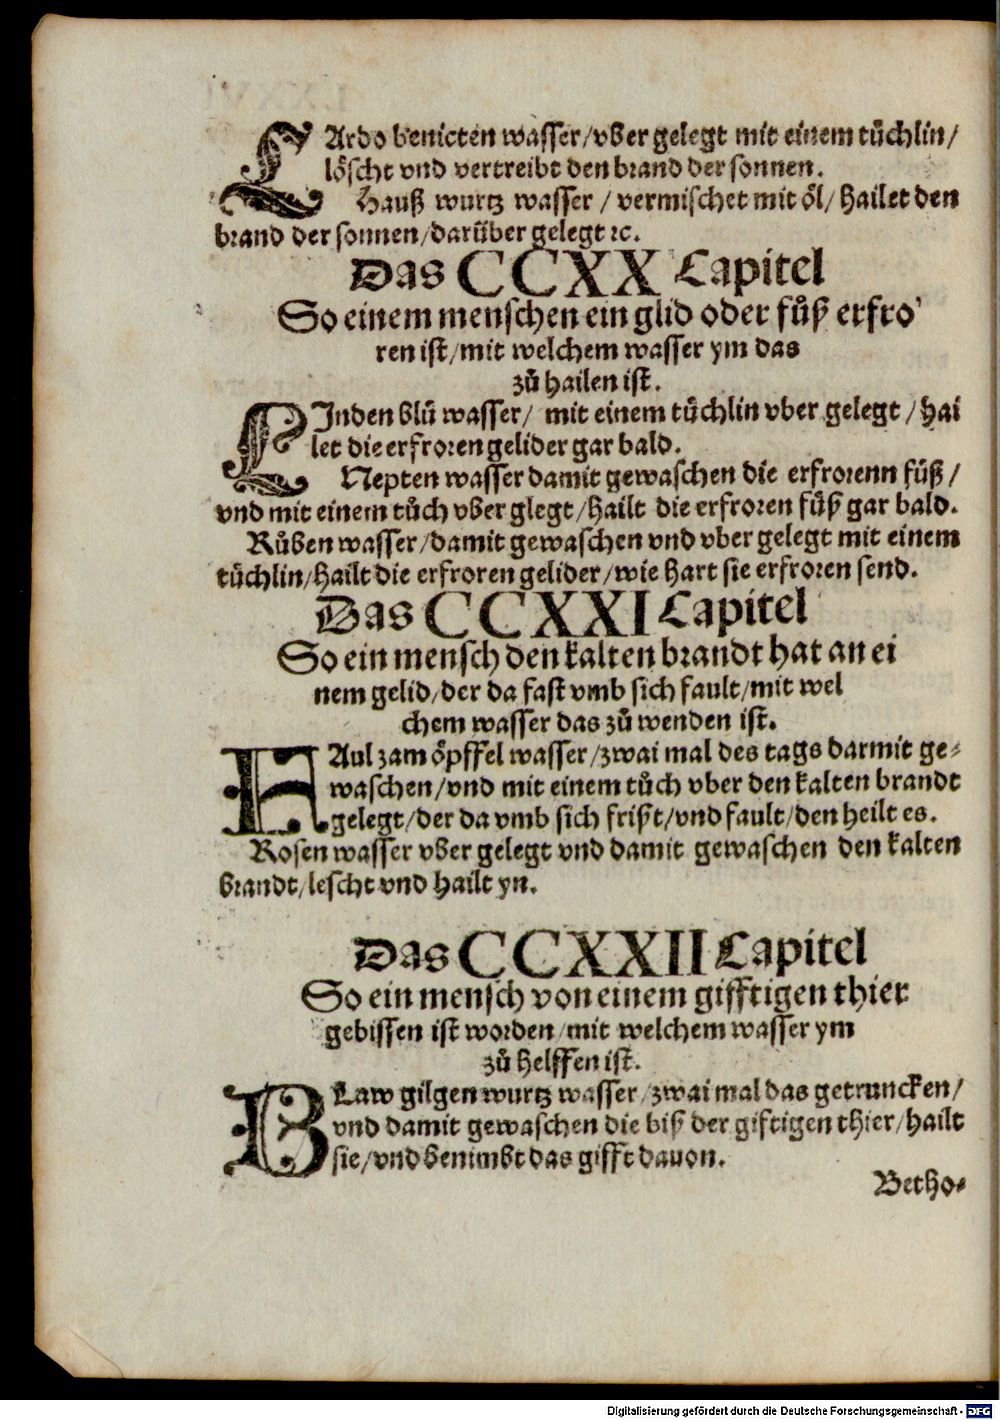 CArdo benicten wasser/vber gelegt mit einem tuͤchlin/
loͤscht vnd vertreibt den brand der sonnen.
Hauß wurtz wasser / vermischet mit oͤl/ hailet den
brand der sonnen/daruͤber gelegt ꝛc.
Das CCXX Capitel
So einem menschen ein glid oder fuͤß erfro
ren ist/mit welchem wasser ym das
zuͦ hailen ist.
LInden bluͤ wasser/ mit einem tuͤchlin vber gelegt /hai
let die erfroren gelider gar bald.
Nepten wasser damit gewaschen die erfrorenn fuͤß/
vnd mit einem tuͦch vber glegt/hailt die erfroren fuͤß gar bald.
Ruͦben wasser/damit gewaschen vnd vber gelegt mit einem
tuͤchlin/hailt die erfroren gelider/wie hart sie erfroren send.
Das CCXXI Capitel
So ein mensch den kalten brandt hat an ei
nem gelid/der da fast vmb sich fault/mit wel
chem wasser das zuͦ wenden ist.
FAul zam oͤpffel wasser/zwai mal des tags darmit ge⸗
waschen/vnd mit einem tuͦch vber den kalten brandt
gelegt/der da vmb sich frißt/vnd fault/den heilt es.
Rosen wasser vber gelegt vnd damit gewaschen den kalten
brandt/lescht vnd hailt yn.
Das CCXXII Capitel
So ein mensch von einem gifftigen thier
gebissen ist worden/mit welchem wasser ym
zuͦ helffen ist.
BLaw gilgen wurtz wasser/zwai mal das getruncken/
vnd damit gewaschen die biß der giftigen thier/hailt
sie/vnd benimbt das gifft dauon.
Betho⸗
Digitalisierung gefördert durch die Deutsche Forschungsgemeinschaft - DFG